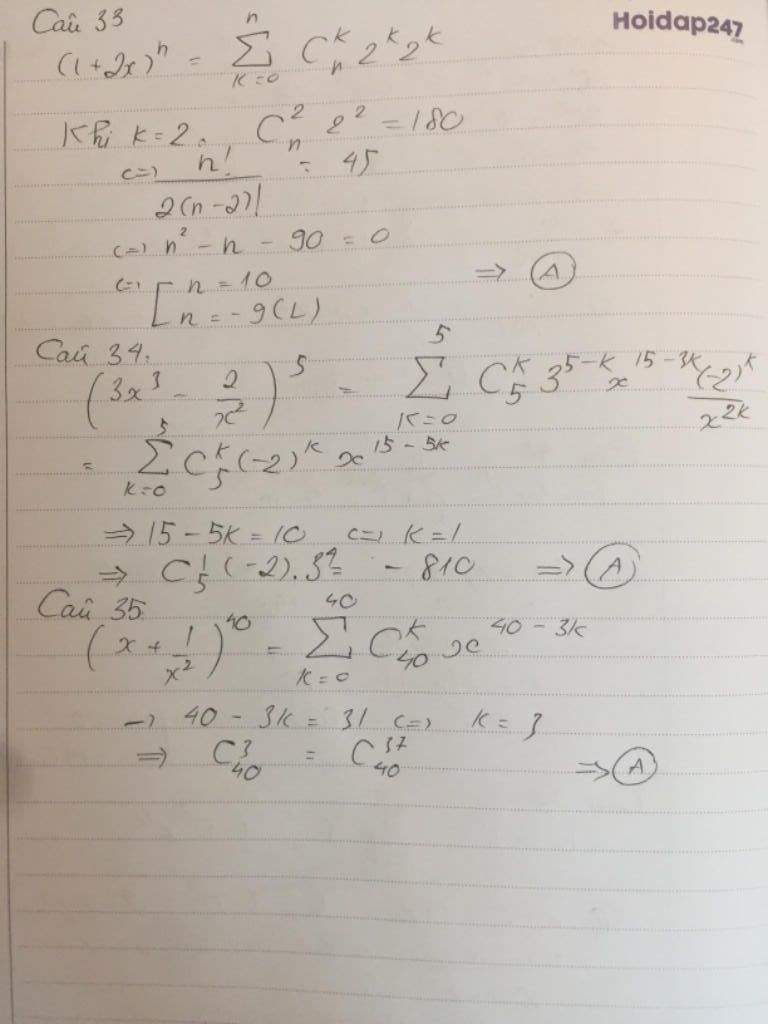 Câu 33
Hoidap247.com
(1+2x)^n = \sum_{k=0}^{n} C_n^k 2^k 2^k
Khi k=2. C_n^2 2^2 = 180
<=> \frac{n!}{2(n-2)!} = 45
<=> n^2 - n - 90 = 0
<=> [ n = 10
n = -9 (L) => (A)
Câu 34.
(3x^3 - \frac{2}{x^2})^5 = \sum_{k=0}^{5} C_5^k 3^{5-k} x^{15-3k} \frac{(-2)^k}{x^{2k}}
= \sum_{k=0}^{5} C_5^k (-2)^k x^{15-5k}
=> 15 - 5k = 10 <=> k = 1
=> C_5^1 (-2).3^4 = -810 => (A)
Câu 35
(x + \frac{1}{x^2})^{40} = \sum_{k=0}^{40} C_{40}^k x^{40-3k}
-> 40 - 3k = 31 <=> k = 3
=> C_{40}^3 = C_{40}^{37} => (A)